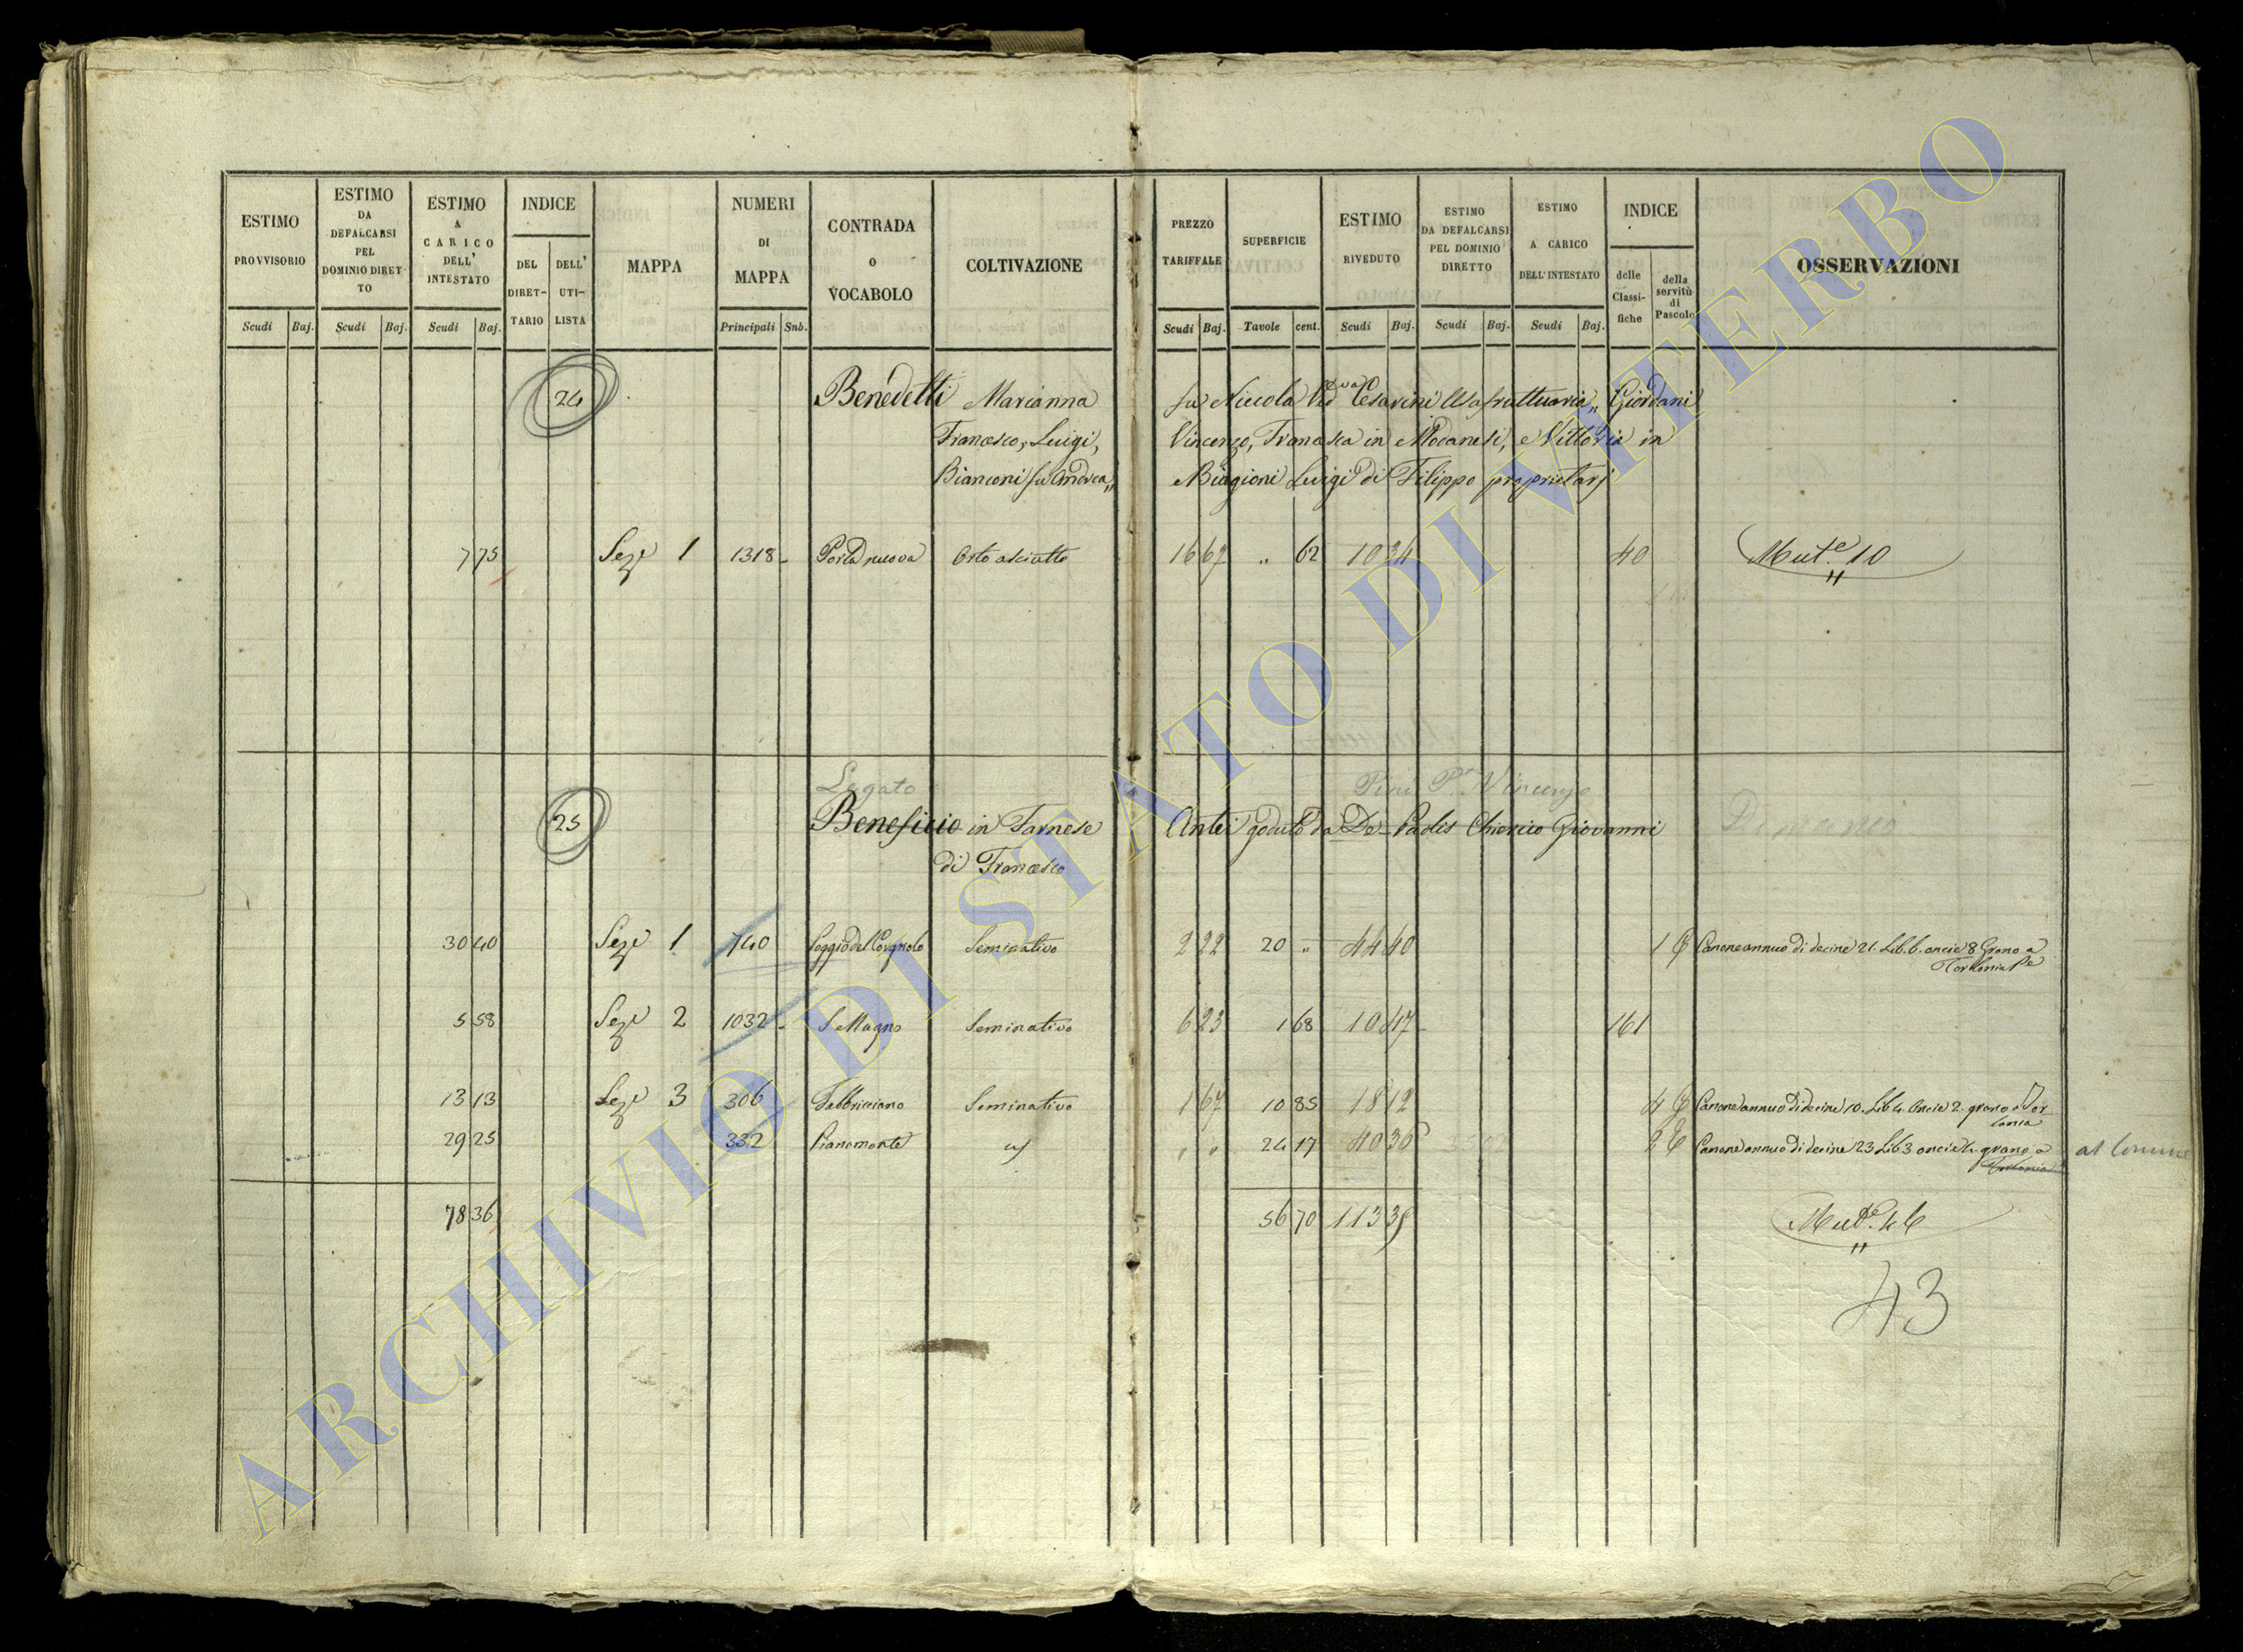 ESTIMO PROVVISORIO
ESTIMO DA DEFALCARSI PEL DOMINIO DIRETTO
ESTIMO A CARICO DELL' INTESTATO
INDICE
DEL DIRETTARIO
DELL' UTILISTA
MAPPA
NUMERI DI MAPPA
CONTRADA o VOCABOLO
COLTIVAZIONE
PREZZO TARIFFALE
SUPERFICIE
ESTIMO RIVEDUTO
ESTIMO DA DEFALCARSI PEL DOMINIO DIRETTO
ESTIMO A CARICO DELL' INTESTATO
INDICE
delle Classifiche
della servitù di Pascolo
OSSERVAZIONI
Scudi Baj. Scudi Baj. Scudi Baj. Principali Sub. Scudi Baj. Tavole cent. Scudi Baj. Scudi Baj. Scudi Baj.
24 Benedetti Marianna fu Niccola Ved.va Cesarini Usufruttuaria,, Giordani
Francesco, Luigi, Vincenzo, Francesca in Modanesi, e Vittoria in
Bianconi fu Andrea,, Biagioni Luigi di Filippo proprietarj
7 75 Sez.e 1 1318 Porta nuova Orto asciutto 16 67 " 62 10 34 40 Mut.e 10
Legato Pini P. Vincenzo
25 Beneficio in Farnese Anti goduto da De Paolis Chierico Giovanni Demanio
di Francesco
30 40 Sez.e 1 740 Poggio del Corgnolo Seminativo 2 22 20 " 44 40 1 G Canone annuo di decine 21. Lib. 6. oncie 8 Grano a
Torlonia Pe
5 58 Sez.e 2 1032 S Magno Seminativo 6 23 1 68 10 47 161
13 13 Sez.e 3 306 Fabbricciano Seminativo 1 67 10 85 18 12 4 G Canone annuo di decine 10. Lib 4. Oncie 2. grano a Tor
lonia
29 25 332 Pianamonte " " 24 17 40 36 Canone annuo di decine 23 Lib 3 oncie 4. grano a al Comune
Torlonia
78 36 56 70 113 35 Mut.e 46
43
ARCHIVIO DI STATO DI VITERBO